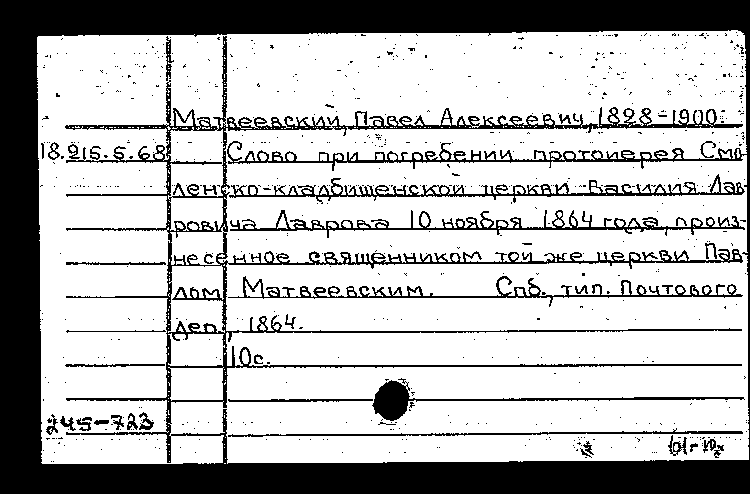 Матвеевский, Павел Алексеевич, 1828-1900.
18.215.5.68 Слово при погребении протоиерея Смо-
ленско-кладбищенской церкви Василия Лав-
ровича Лаврова 10 ноября 1864 года, произ-
несенное священником той же церкви Пав-
лом Матвеевским. Спб., тип. Почтового
деп., 1864.
10с.
245-723